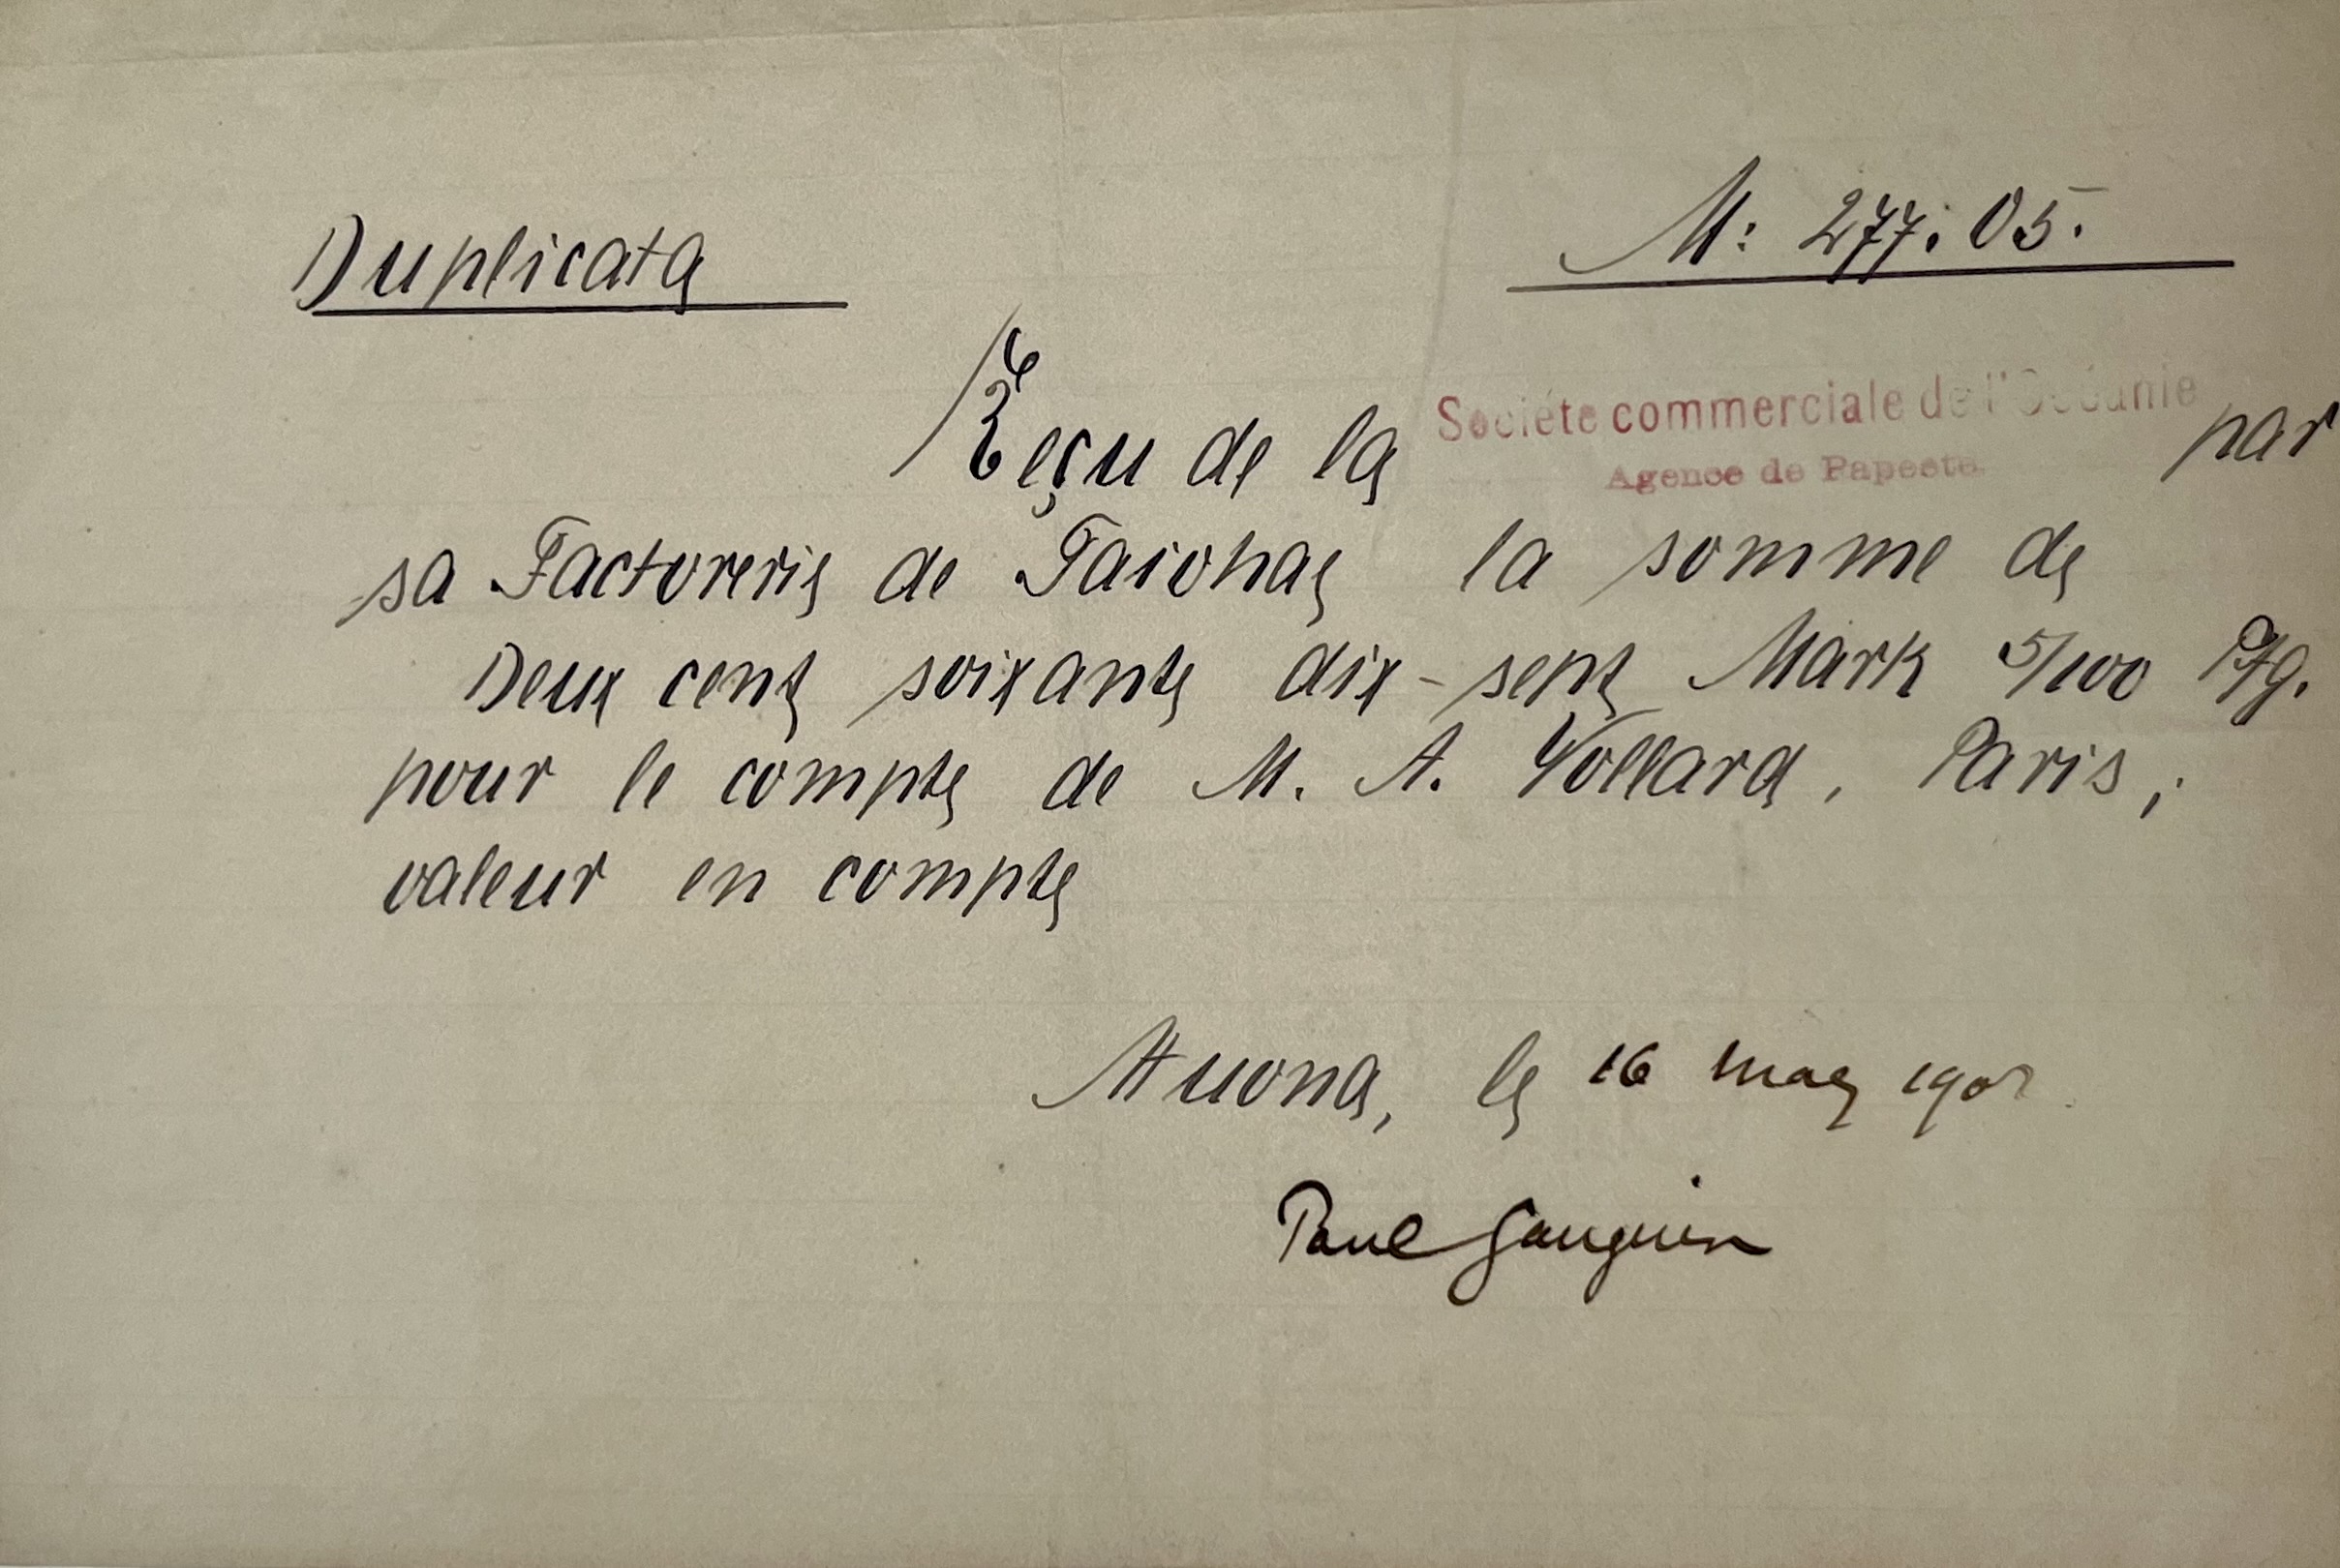 Duplicata
M: 277.05.
Reçu de la Société commerciale de l'Océanie par
Agence de Papeete
sa Factorerie de Taiohae la somme de
Deux cent soixante dix-sept Mark 5/100 Pfg.
pour le compte de M. A. Vollard, Paris,
valeur en compte
Atuona, le 16 mae
Paul Gauguin